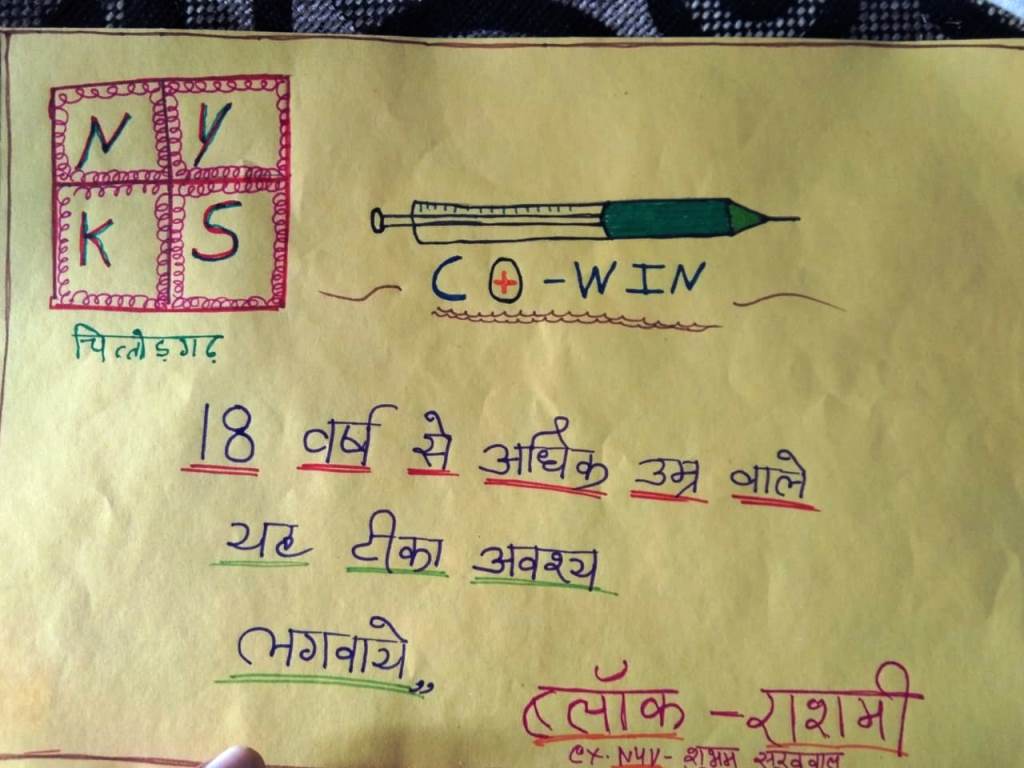 N Y
K S
चित्तोड़गढ़
CO-WIN
18 वर्ष से अधिक उम्र वाले
यह टीका अवश्य
लगवाये,,
ब्लॉक - राशमी
ex. NYV - शुभम